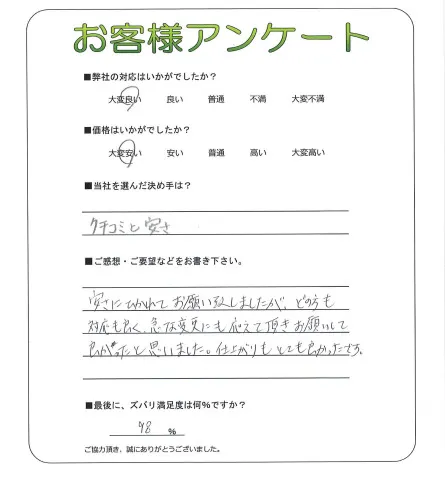 お客様アンケート
■弊社の対応はいかがでしたか？
大変良い 良い 普通 不満 大変不満
■価格はいかがでしたか？
大変安い 安い 普通 高い 大変高い
■当社を選んだ決め手は？
クチコミと安さ
■ご感想・ご要望などをお書き下さい。
安さにひかれてお願い致しましたが、どの方も
対応も良く、急な変更にも応えて頂きお願いして
良かったと思いました。仕上がりもとても良かったです。
■最後に、ズバリ満足度は何％ですか？
98 ％
ご協力頂き、誠にありがとうございました。